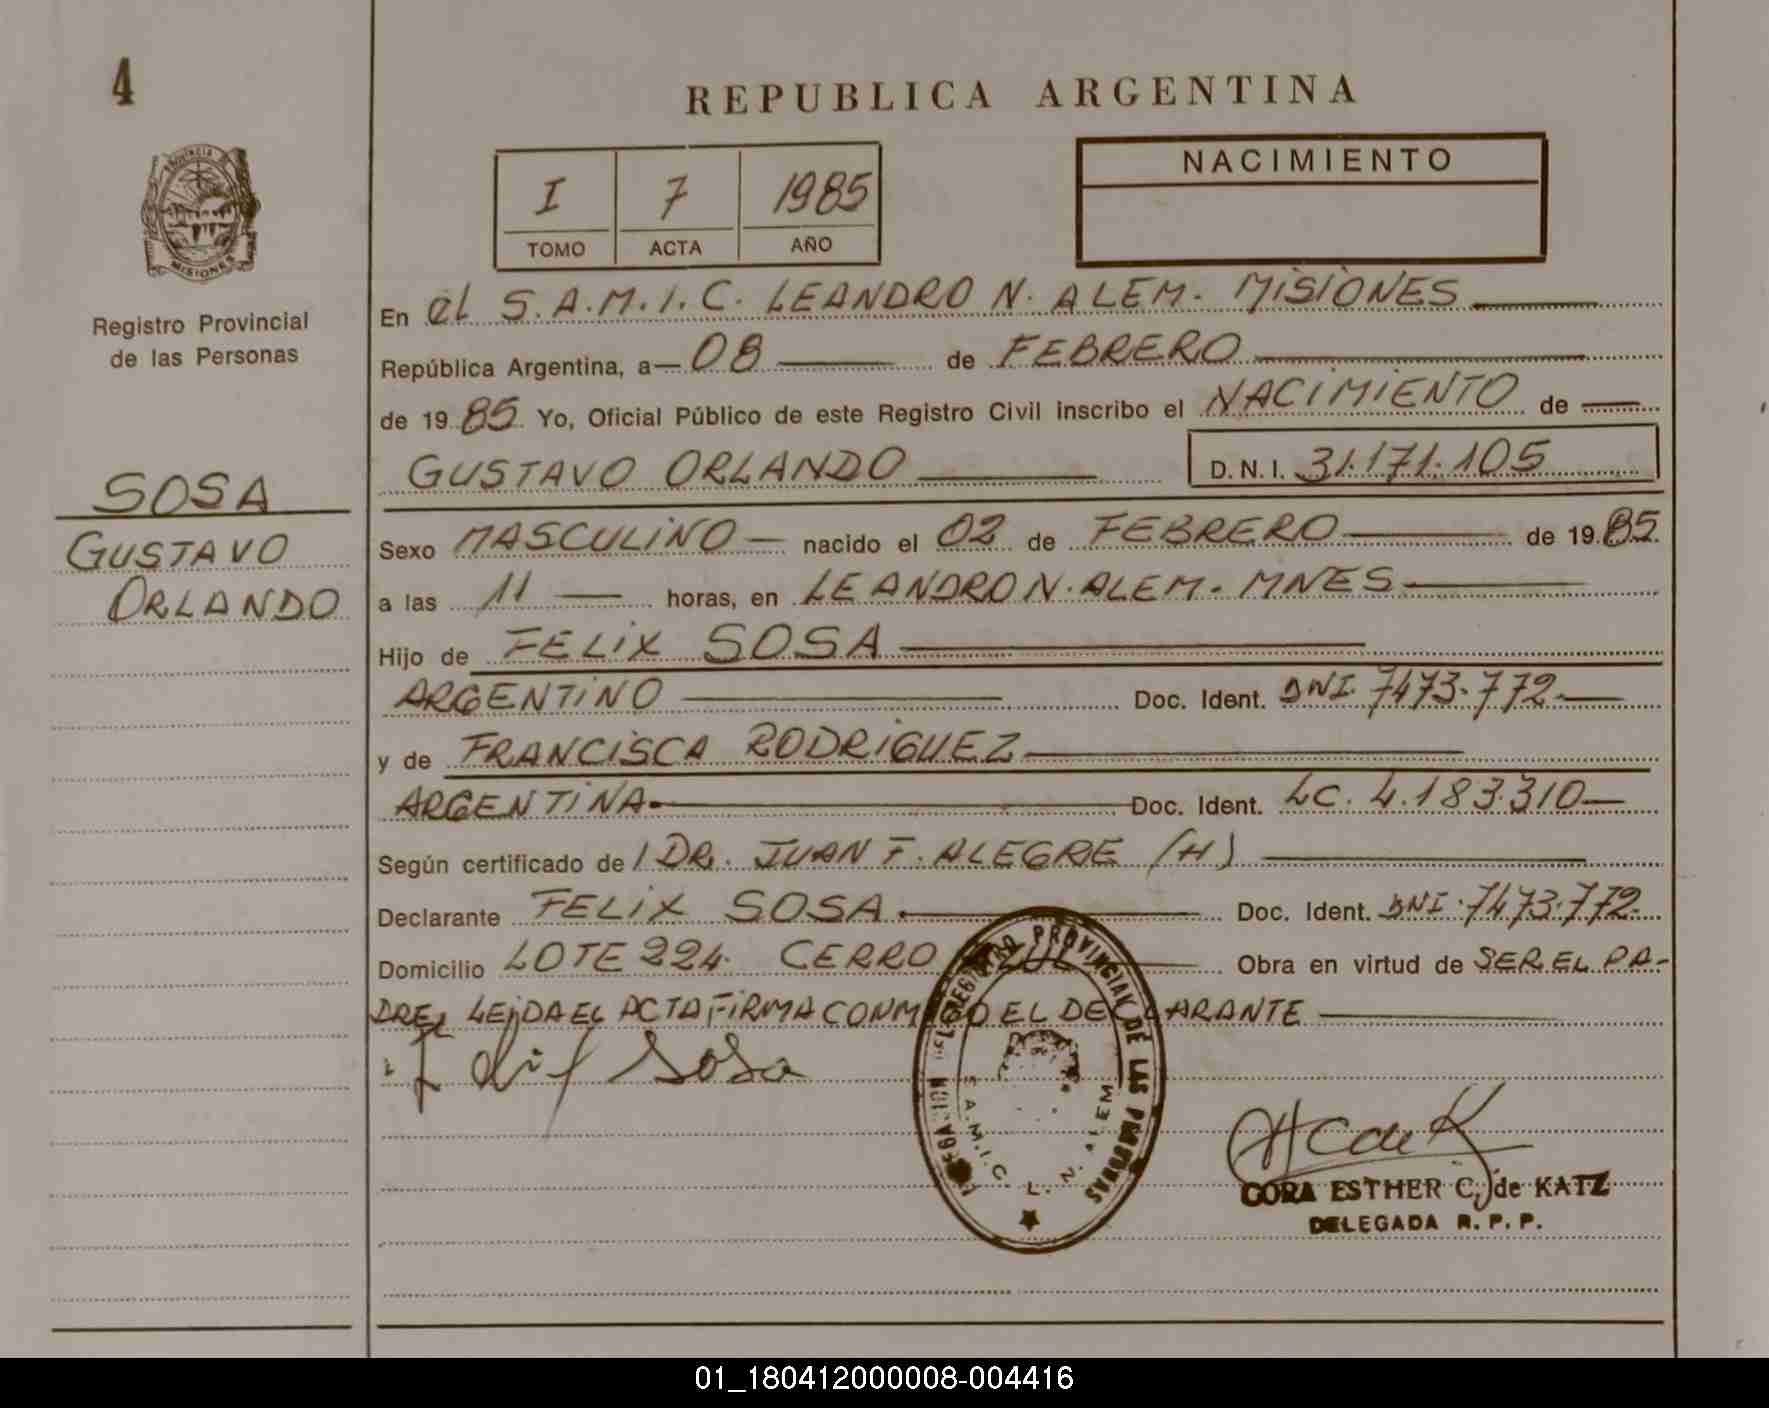 4
REPUBLICA ARGENTINA
PROVINCIA DE
MISIONES
Registro Provincial
de las Personas
I 7 1985
TOMO ACTA AÑO
NACIMIENTO
SOSA
GUSTAVO
ORLANDO
En el S.A.M.I.C. LEANDRO N. ALEM. MISIONES
República Argentina, a 08 de FEBRERO
de 1985 Yo, Oficial Público de este Registro Civil inscribo el NACIMIENTO de
GUSTAVO ORLANDO D.N.I. 31.171.105
Sexo MASCULINO nacido el 02 de FEBRERO de 1985
a las 11 horas, en LEANDRO N. ALEM. MNES
Hijo de FELIX SOSA
ARGENTINO Doc. Ident. DNI. 7473.772
y de FRANCISCA RODRIGUEZ
ARGENTINA Doc. Ident. LC. 4.183.310
Según certificado de DR. JUAN F. ALEGRE (H)
Declarante FELIX SOSA Doc. Ident. DNI. 7473.772
Domicilio LOTE 224. CERRO AZUL Obra en virtud de SER EL PA-
DRE LEIDA EL ACTA FIRMA CONMIGO EL DECLARANTE
Sosa
DELEGACION DEL REGISTRO PROVINCIAL DE LAS PERSONAS
S.A.M.I.C. L. N. ALEM
CORA ESTHER C. de KATZ
DELEGADA R. P. P.
01_180412000008-004416